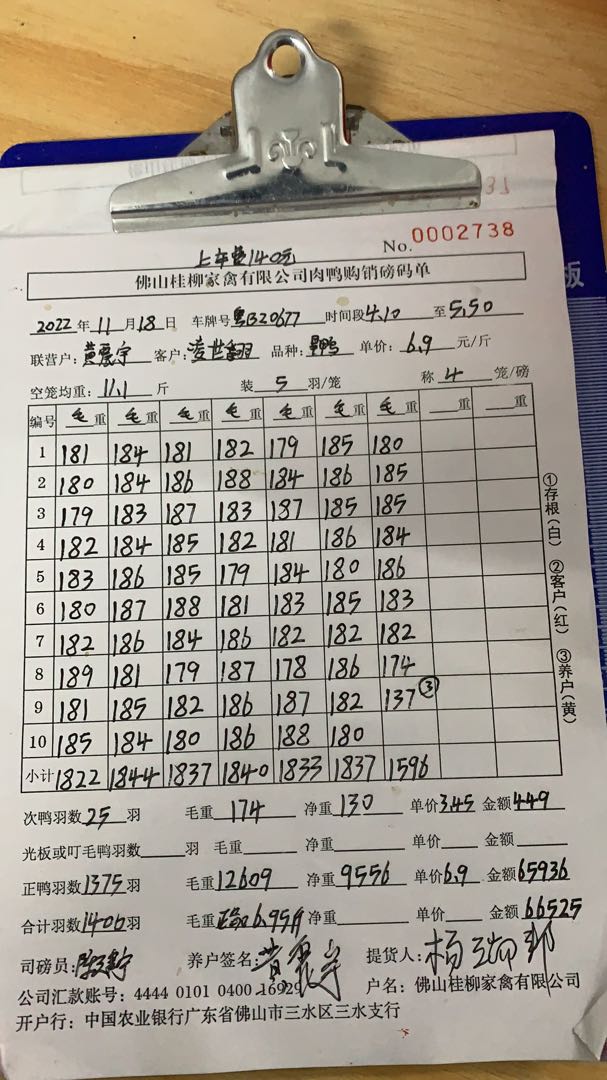 No. 0002738
上车费140元
佛山桂柳家禽有限公司肉鸭购销磅码单
2022年11月18日 车牌号粤B20677 时间段4.10至5.50
联营户: 黄震宇 客户: 凌世翻 品种: 单价: 6.9 元/斤
空笼均重: 11.1 斤 装 5 羽/笼 称 4 笼/磅
编号 毛重 毛重 毛重 毛重 毛重 毛重 毛重 重 重
1 181 184 181 182 179 185 180
2 180 184 186 188 184 186 185
3 179 183 187 183 187 185 185
4 182 184 185 182 181 186 184
5 183 186 185 179 184 180 186
6 180 187 188 181 183 185 183
7 182 186 184 186 182 182 182
8 189 181 179 187 178 186 174
9 181 185 182 186 187 182 137 ③
10 185 184 180 186 188 180
小计 1822 1844 1837 1840 1833 1837 1596
①存根(白) ②客户(红) ③养户(黄)
次鸭羽数25羽 毛重 174 净重 130 单价3.45 金额449
光板或叮毛鸭羽数 羽 毛重 净重 单价 金额
正鸭羽数1375羽 毛重12609 净重 9556 单价6.9 金额65936
合计羽数1400羽 毛重 6.95斤 净重 单价 金额 66525
司磅员: 养户签名: 黄震宇 提货人: 杨
公司汇款账号: 4444 0101 0400 16929 户名: 佛山桂柳家禽有限公司
开户行: 中国农业银行广东省佛山市三水区三水支行